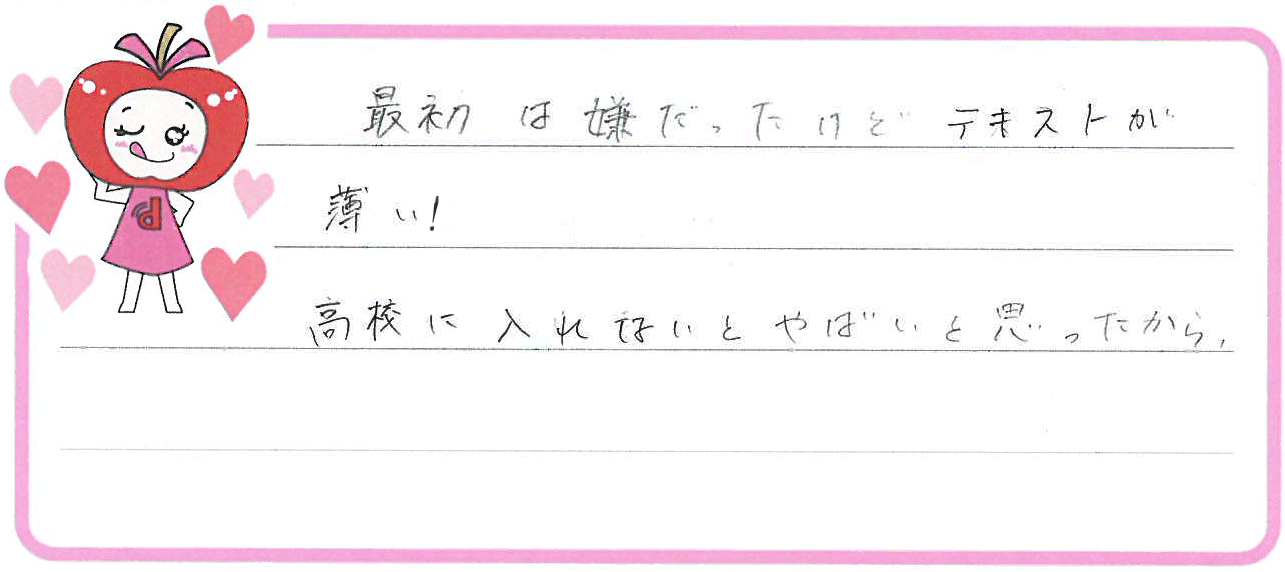 最初は嫌だったけどテキストが
薄い!
高校に入れないとやばいと思ったから,